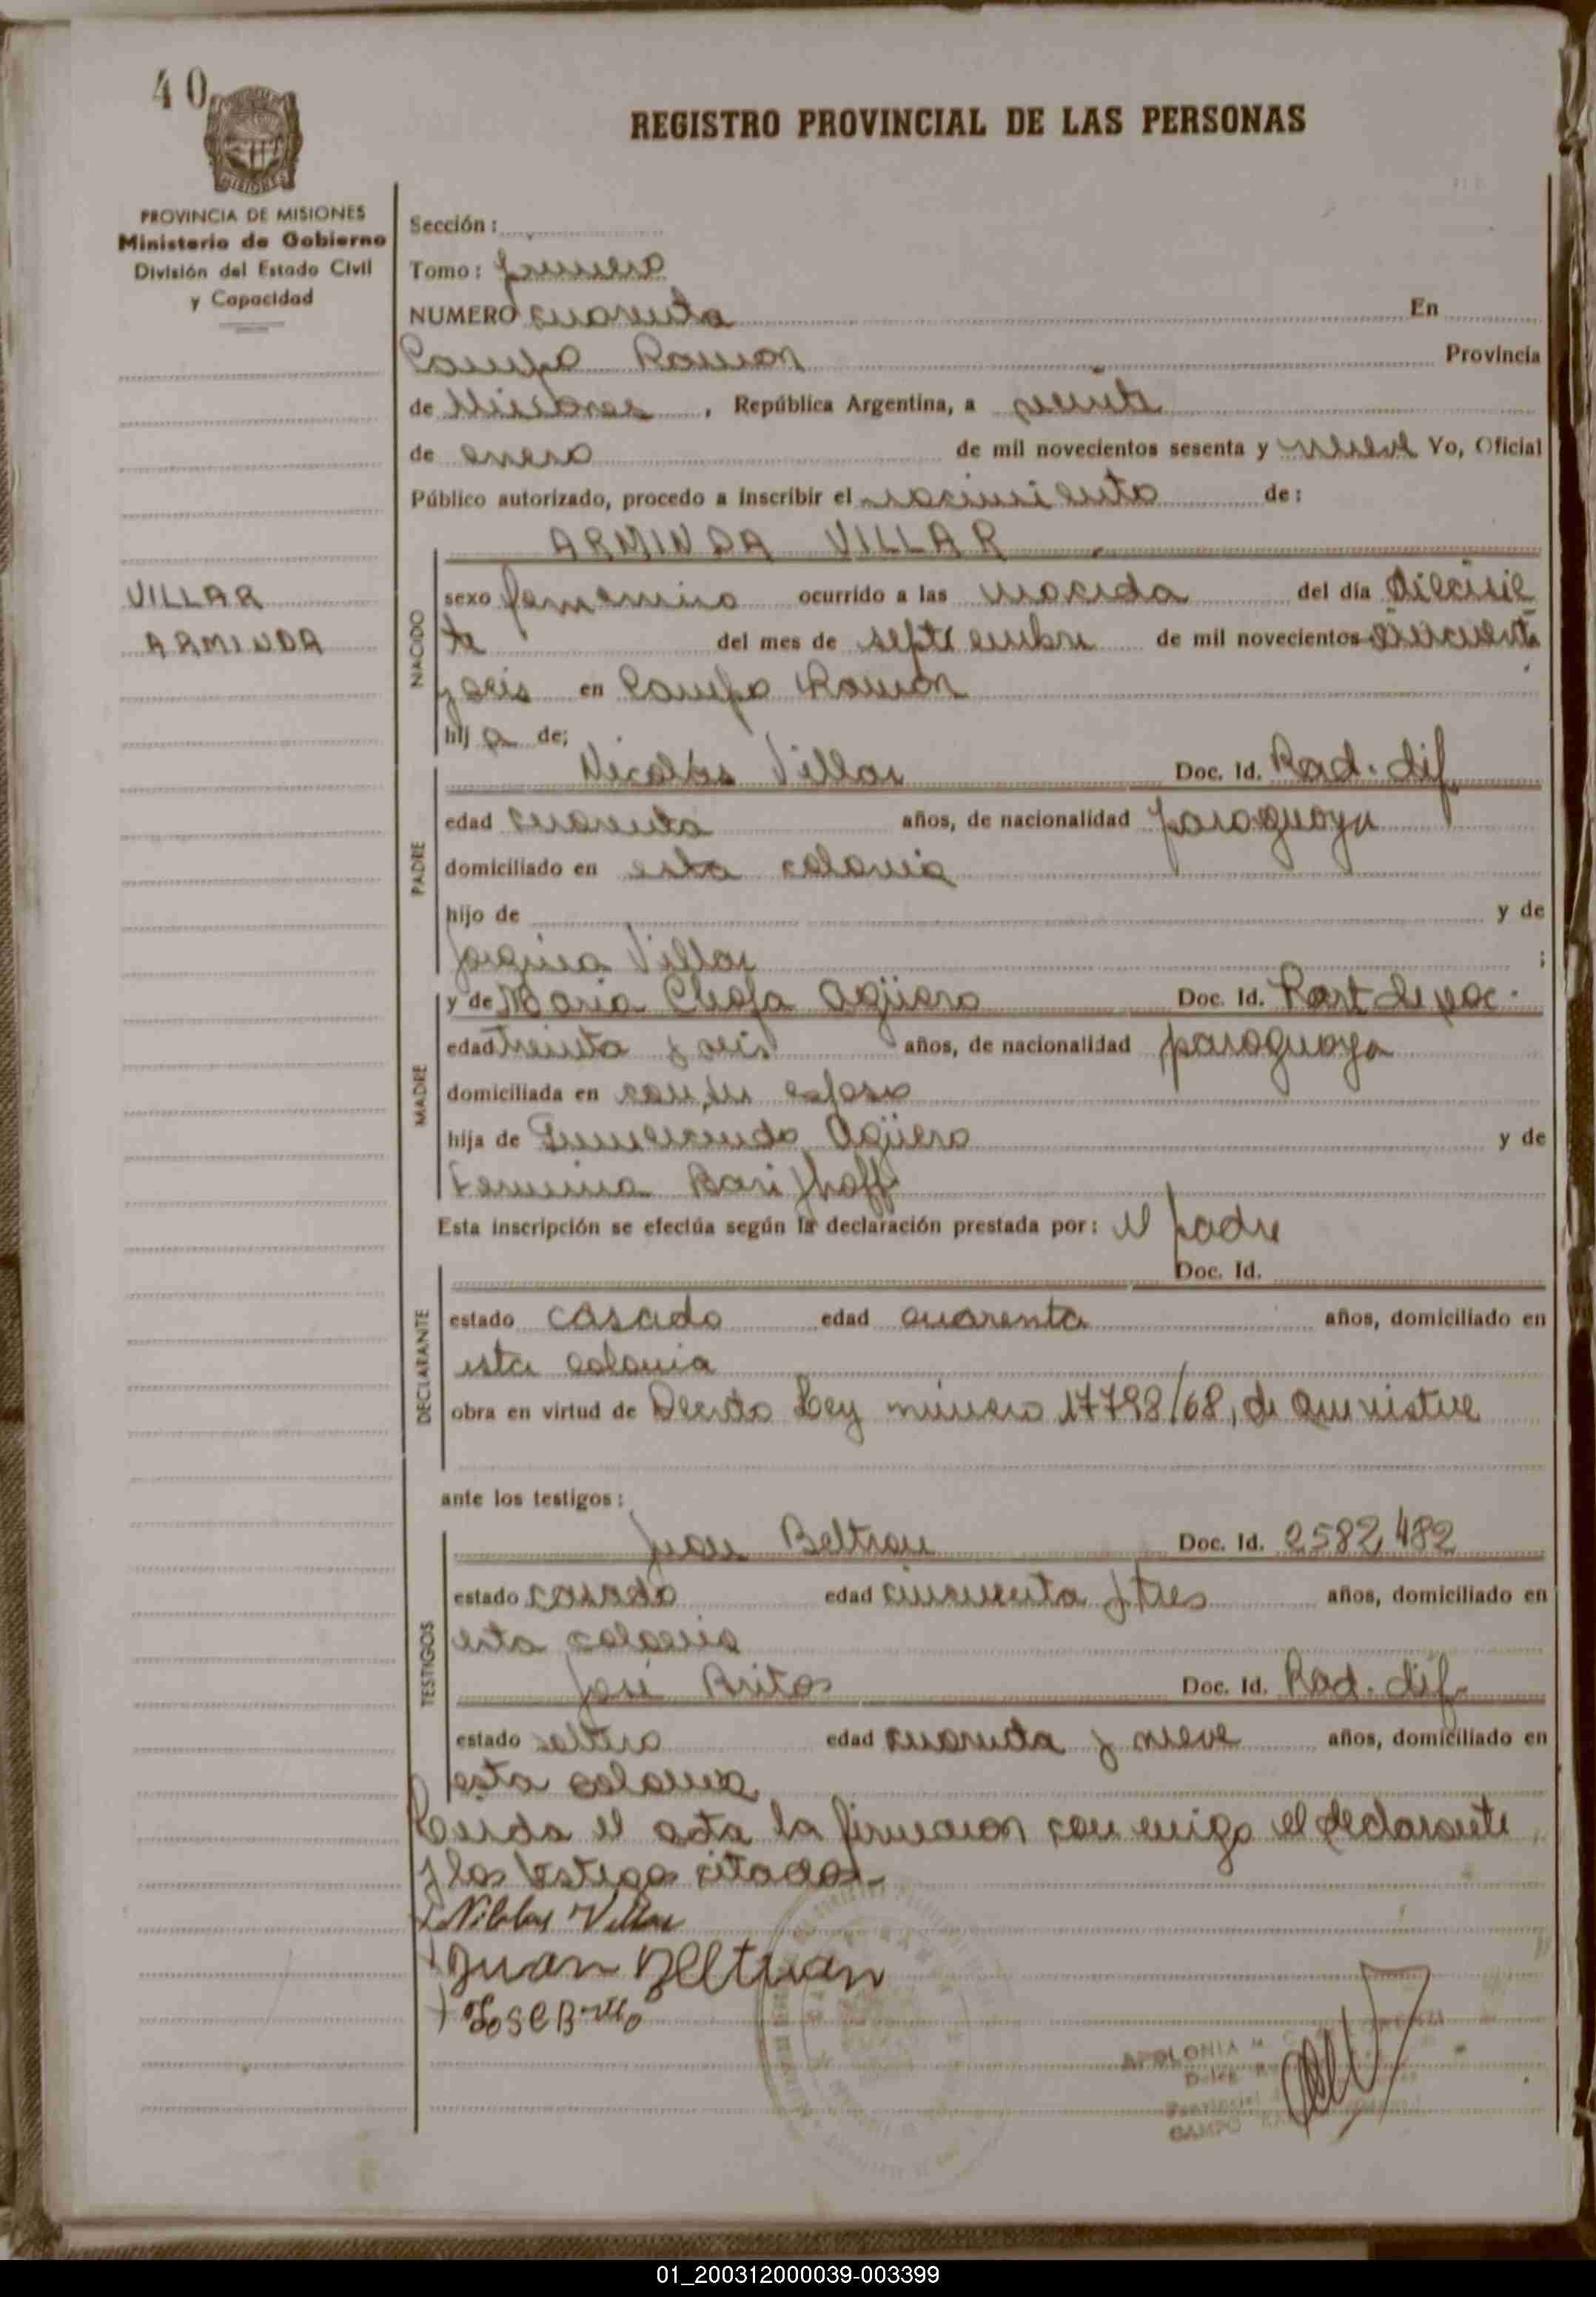 40
REGISTRO PROVINCIAL DE LAS PERSONAS
MISIONES
PROVINCIA DE MISIONES
Ministerio de Gobierno
División del Estado Civil
y Capacidad
Sección :
Tomo : primero
NUMERO cuarenta En
Campo Ramon Provincia
de Misiones , República Argentina, a veinte
de enero de mil novecientos sesenta y nueve Yo, Oficial
Público autorizado, procedo a inscribir el nacimiento de :
ARMINDA VILLAR
VILLAR
ARMINDA
NACIDO
sexo femenino ocurrido a las del día diecisie
te del mes de septiembre de mil novecientos cincuenta
y seis en Campo Ramon
hij a de;
PADRE
Nicolas Villar Doc. Id. Rad. dif
edad cuarenta años, de nacionalidad paraguaya
domiciliado en esta colonia
hijo de y de
Villar ;
MADRE
y de Maria Agüero Doc. Id. Part de nac.
edad treinta y seis años, de nacionalidad paraguaya
domiciliada en con su esposo
hija de Agüero y de
Esta inscripción se efectúa según la declaración prestada por : el padre
Doc. Id.
DECLARANTE
estado casado edad cuarenta años, domiciliado en
esta colonia
obra en virtud de Decreto Ley número 17798/68, de
ante los testigos :
TESTIGOS
Juan Beltran Doc. Id. 2582482
estado casado edad cincuenta y tres años, domiciliado en
esta colonia
José Britos Doc. Id. Rad. dif.
estado soltero edad cuarenta y nueve años, domiciliado en
esta colonia
Leida el acta la firmaron con migo el declarante
y los testigos citados
Villar
Juan Beltran
Jose
APOLONIA
CAMPO
01_200312000039-003399